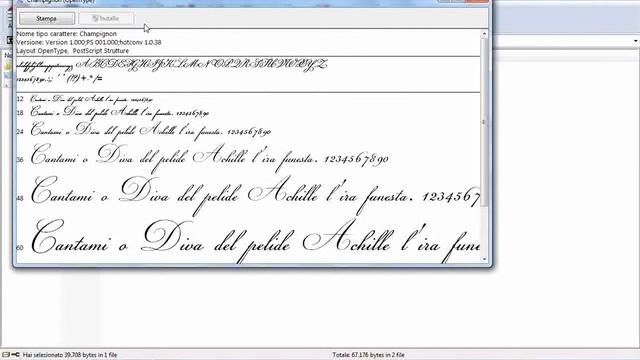 Champignon (OpenType)
Stampa
Installa
Nome tipo carattere: Champignon
Versione: Version 1.000;PS 001.000;hotconv 1.0.38
Layout OpenType, PostScript Strutture
ABCDEFGHIJKLMNOPQRSTUVWXYZ
1234567890.:; ' " (!?) +-*/=
12 Cantami o Diva del pelide Achille l'ira funesta. 1234567890
18 Cantami o Diva del pelide Achille l'ira funesta. 1234567890
24 Cantami o Diva del pelide Achille l'ira funesta. 1234567890
36 Cantami o Diva del pelide Achille l'ira funesta. 1234567890
48 Cantami o Diva del pelide Achille l'ira funesta. 1234567
60 Cantami o Diva del pelide Achille l'ira fune
Hai selezionato 39.708 bytes in 1 file
Totale: 67.176 bytes in 2 file